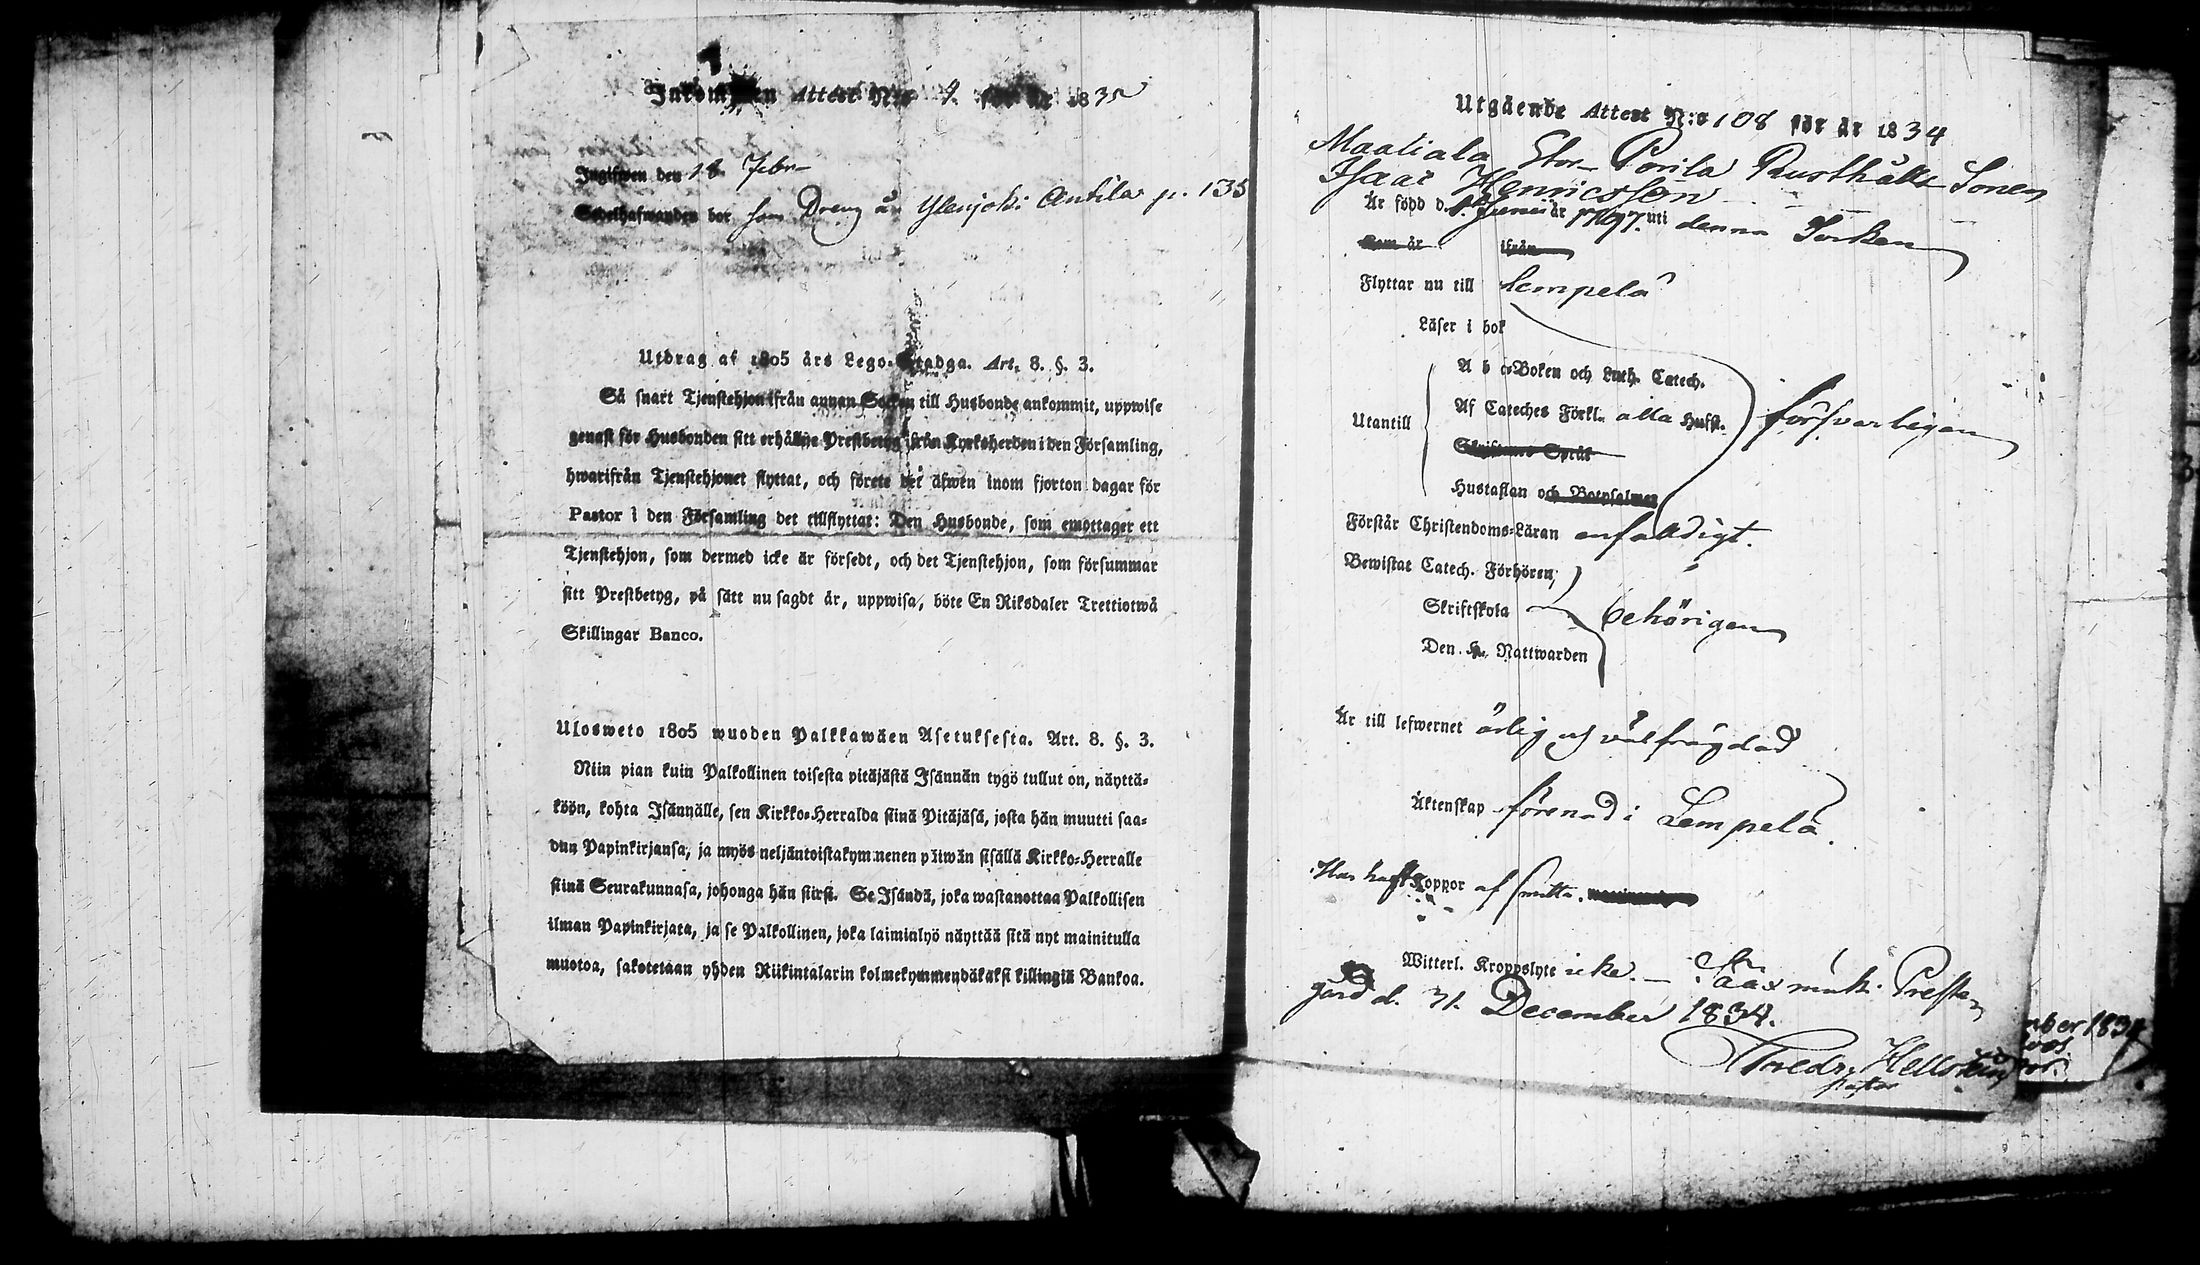 Inkommen Attest N:o 9. för år 1835
Ingifwen den 18. Febr.
Sedelhafwanden bor som Dreng å Ylenjoki Anttila p. 135
Utdrag af 1805 års Lego-Stadga. Art. 8. §. 3.
Så snart Tjenstehjon ifrån annan Socken till Husbonde ankommit, uppwise
genast för Husbonden sitt erhållne Prestbetyg ifrån Kyrkoherden i den Församling,
hwarifrån Tjenstehjonet flyttat, och förete det äfwen inom fjorton dagar för
Pastor i den Församling det tillflyttat: Den Husbonde, som emottager ett
Tjenstehjon, som dermed icke är försedt, och det Tjenstehjon, som försummar
sitt Prestbetyg, på sätt nu sagdt är, uppwisa, böte En Riksdaler Trettiotwå
Skillingar Banco.
Ulosweto 1805 wuoden Palkkawäen Asetuksesta. Art. 8. §. 3.
Niin pian kuin Palkollinen toisesta pitäjästä Isännän tygö tullut on, näyttä-
köön, kohta Isännälle, sen Kirkko-Herralda siinä Pitäjäsä, josta hän muutti saa-
dun Papinkirjansa, ja myös neljäntoistakymmenen päiwän sisällä Kirkko-Herralle
siinä Seurakunnasa, johonga hän siirsi. Se Isändä, joka wastanottaa Palkollisen
ilman Papinkirjata, ja se Palkollinen, joka laiminlyö näyttää sitä nyt mainitulla
muotoa, sakotetaan yhden Riikintalarin kolmekymmendäkaksi killingiä Bankoa.
Utgående Attest N:o 108 för år 1834
Maatiala Stor Porila Rusthålls Sonen
Isaac Henricsson
Är född d. 1. Junii år 1797. uti denna Socken
Som är ifrån
Flyttar nu till Lempelä
Läser i bok
Utantill
A b c-Boken och Luth. Catech.
Af Cateches Förkl. alla Hufst.
försvarligen
Skriftenes Språk
Hustaflan och Botpsalmer
Förstår Christendoms-Läran enfaldigt.
Bewistat Catech. Förhören,
Skriftskola
behörigen
Den. H. Nattwarden
Är till lefwernet ärlig och välfrägdad
Äktenskap förenad i Lempelä.
Har haft Koppor af smitta.
Witterl. Kroppslyte icke. — Sääxmäki Preste
gård d. 31. December 1834.
Fredr. Hellsten
pastor
mber 1834